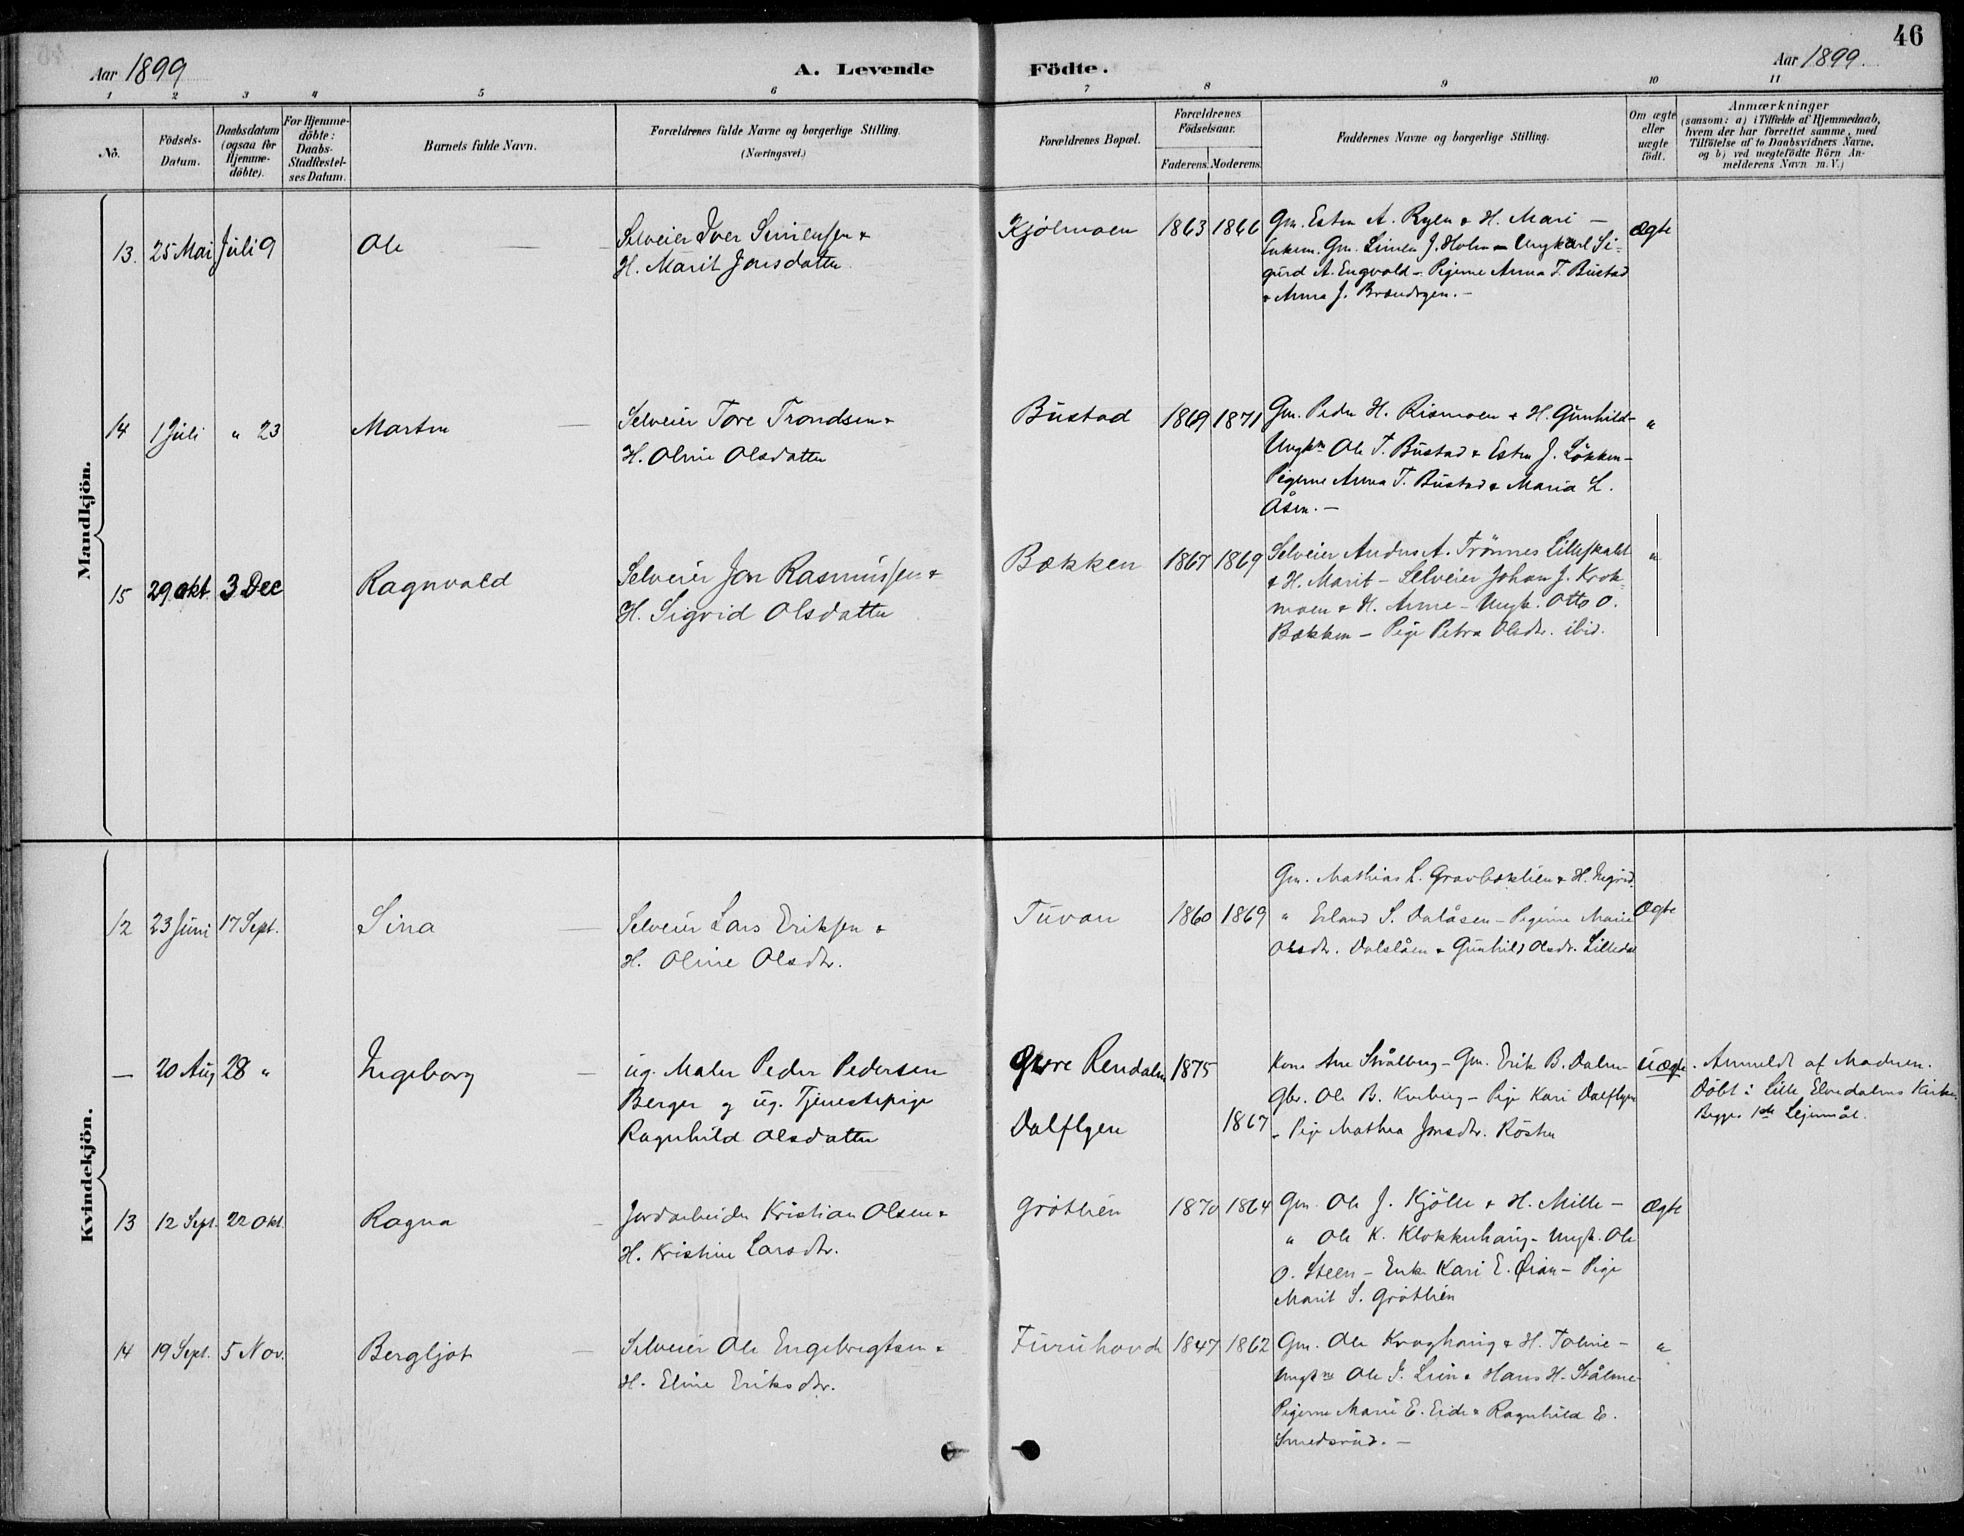 46
Aar 1899
A. Levende
Födte.
Aar 1899.
1 2 3 4 5 6 7 8 9 10 11
Nô.
Födsels-
Datum.
Daabsdatum
(ogsaa for
Hjemme-
döbte).
For Hjemme-
döbte:
Daabs-
Stadfæstel-
ses Datum.
Barnets fulde Navn.
Forældrenes fulde Navne og borgerlige Stilling.
(Næringsvei.)
Forældrenes Bopæl.
Forældrenes
Födselsaar.
Faderens.
Moderens.
Faddernes Navne og borgerlige Stilling.
Om ægte
eller
uægte
födt.
Anmærkninger
(saasom: a) i Tilfælde af Hjemmedaab,
hvem der har forrettet samme, med
Tilföielse af to Daabsvidners Navne,
og b) ved uægtefödte Börn An-
melderens Navn m.V.)
Mandkjön.
13. 25 Mai Juli 9 Ole
Selveier Iver Simensen &
H. Marit Jonsdatter
Kjølmoen 1863 1866
Gm. Esten A. Ryen & H. Mari –
Enkem. Gm. Simen J. Holm – Ungkarl Si-
gurd A. Engvold – Pigerne Anna T. Bustad
& Anna J. Brændvgen. –
Ægte
14 1 Juli " 23 Martin
Selveier Tore Trondsen &
H. Oline Olsdatter
Bustad 1869 1871
Gm. Peder H. Rismoen & H. Gunhild –
Ungkne Ole T. Bustad & Esten J. Løkken –
Pigerne Anna T. Bustad & Maria L.
Åsen. –
"
15 29 okt. 3 Dec Ragnvald
Selveier Jon Rasmussen &
H. Sigrid Olsdatter
Bækken 1867 1869
Selveier Anders A. Trønnes Lilleskalet
& H. Marit – Selveier Johan J. Krok-
moen & H. Anne – Ungk. Otto O.
Bækken – Pige Petra Olsdr. ibid.
"
Kvindekjön.
12 23 Juni 17 Sept. Sina
Selveier Lars Eriksen &
H. Oline Olsdr.
Tuvan 1860 1869
Gm. Mathias L. Gravbæklien & H. Ingrid
" Erland S. Dalåsen – Pigerne Marie
Olsdr. Dalslåen & Gunhild Olsdr. Lilledal
Ægte
— 20 Aug 28 " Ingeborg
ug. Maler Peder Pedersen
Berger og ug. Tjenestepige
Ragnhild Olsdatter
Øvre Rendalen 1875
Dalflyen 1867
Kone Ane Strålberg – Gm. Erik B. Dalen –
Gbr. Ole B. Kveberg – Pige Kari Dalflyen
– Pige Mathea Jonsdr. Røsten
Uægte.
Anmeldt af Moderen.
Döbt i Lille Elvedalens Kirke.
Begges 1ste Lejermål.
13 12 Sept. 22 okt. Ragna
Jordarbeider Kristian Olsen &
H. Kristine Larsdr.
Grøtlien 1870 1864
Gm. Ole J. Kjølle & H. Mille –
" Ole K. Klokkerhaug – Ungk. Ole
O. Steen – Enke Kari E. Øian – Pige
Marit S. Grøtlien
Ægte
14 19 Sept. 5 Nov. Bergljot
Selveier Ole Engebregtsen &
H. Eline Eriksdr.
Furuhovde 1847 1862
Gm. Ole Kroghaug & H. Toline –
Ungkne Ole J. Lien & Hans H. Stålme-
Pigerne Marie E. Eide & Ragnhild E.
Smedsrud. –
"